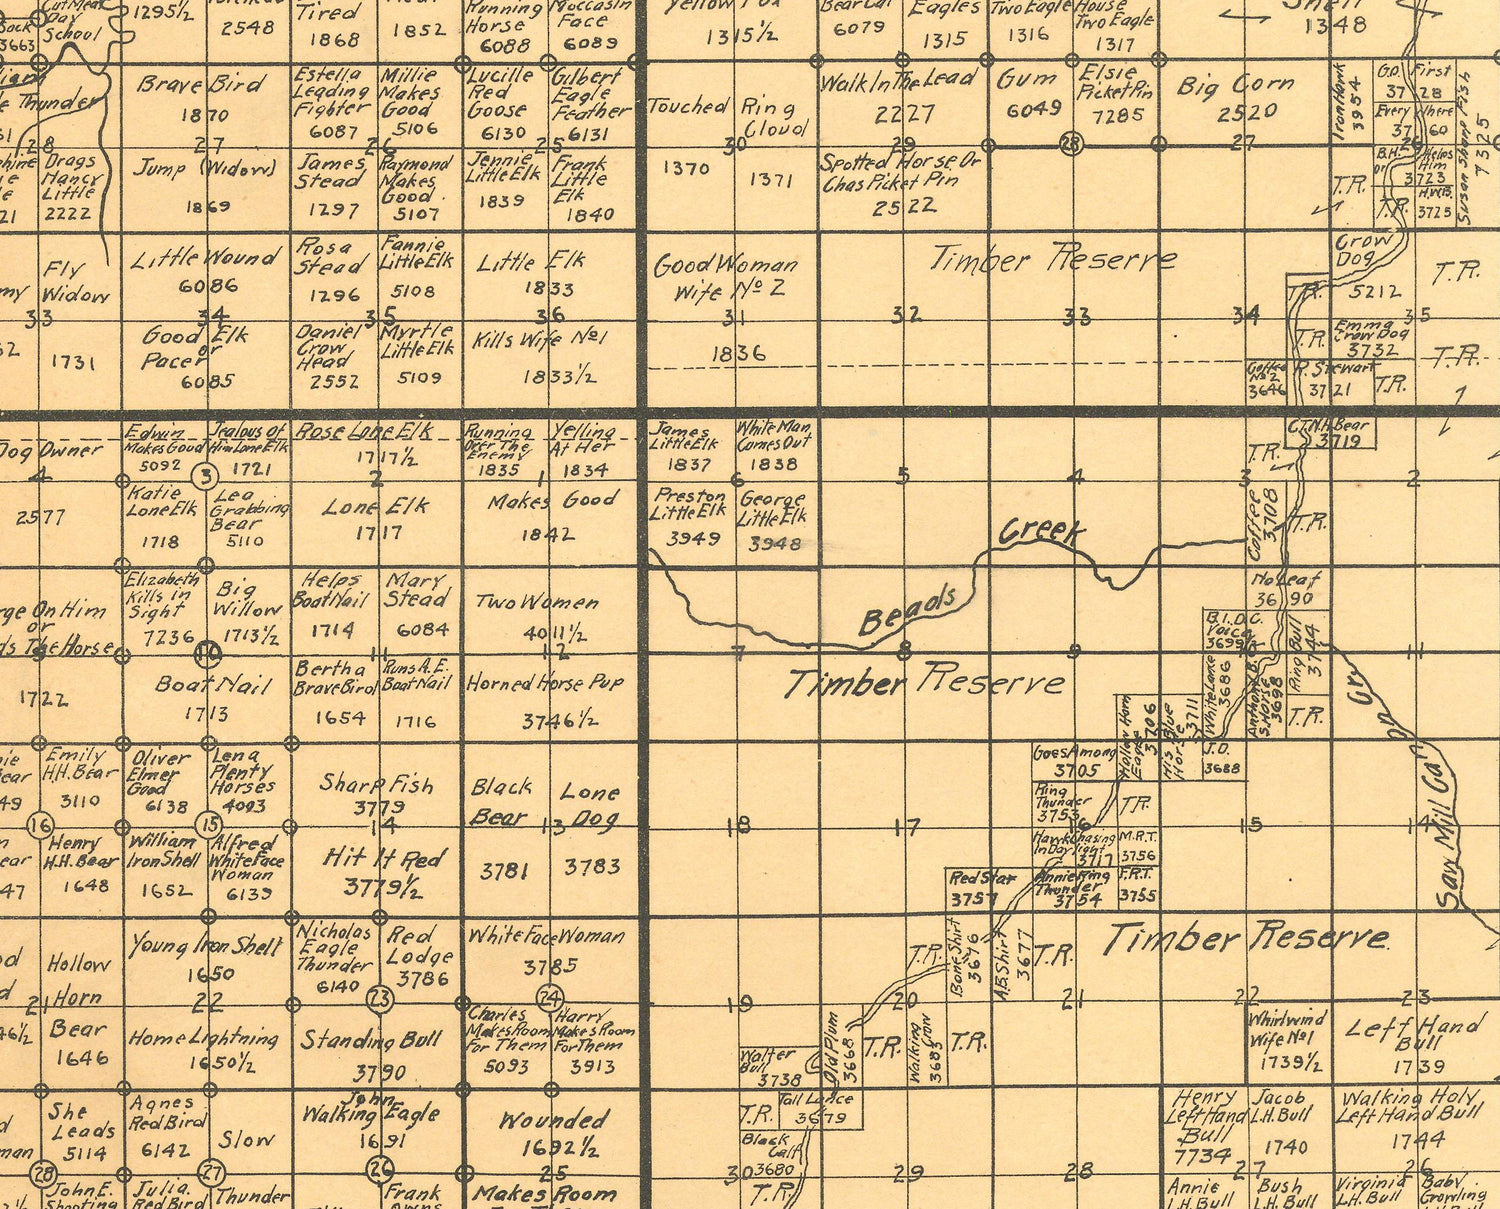 CutMeat
Day
School
3663
1295½
2548
Tired
1868
1852
Running
Horse
6088
Moccasin
Face
6089
Yellow Fox
1315½
Bear Cat
6079
Eagles
1315
Two Eagle
1316
House
Two Eagle
1317
Shell
1348
Thunder
28
Brave Bird
1870
27
Estella
Leading
Fighter
6087
Millie
Makes
Good
5106
26
Lucille
Red
Goose
6130
Gilbert
Eagle
Feather
6131
25
Touched
Ring
Cloud
30
1370
1371
Walk In The Lead
2227
29
Gum
6049
Elsie
Picket Pin
7285
28
Big Corn
2520
27
Iron Hawk
3954
G.D. First
37 28
Every Where
37 60
26
B.H.
or
Helps
Him
3723
H.W.B.
3725
T.R.
T.R.
Susan Sharp Fish
7325
Drags
Nancy
Little
2222
Jump (Widow)
1869
James
Stead
1297
Raymond
Makes
Good
5107
Jennie
Little Elk
1839
Frank
Little
Elk
1840
Spotted Horse Or
Chas Picket Pin
2522
Fly
Widow
33
1731
Little Wound
6086
34
Good Elk
or
Pacer
6085
Rosa
Stead
1296
Fannie
Little Elk
5108
35
Daniel
Crow
Head
2552
Myrtle
Little Elk
5109
Little Elk
1833
36
Kills Wife No1
1833½
Good Woman
Wife No 2
31
1836
Timber Reserve
32
33
34
Crow
Dog
5212
T.R.
T.R.
35
T.R.
Emma
Crow Dog
3732
T.R.
Coffee
No 2
3646
R. Stewart
3721
T.R.
Dog Owner
4
2577
Edwin
Makes Good
5092
Jealous of
Him Lone Elk
1721
3
Katie
Lone Elk
1718
Lea
Grabbing
Bear
5110
Rose Lone Elk
1717½
2
Lone Elk
1717
Running
Over The
Enemy
1835
Yelling
At Her
1834
1
Makes Good
1842
James
Little Elk
1837
White Man
Comes Out
1838
6
Preston
Little Elk
3949
George
Little Elk
3948
5
4
3
2
C.T.N.H. Bear
3719
T.R.
T.R.
Coffee
3708
Beads Creek
On Him
or
The Horse
1722
Elizabeth
Kills in
Sight
7236
Big
Willow
1713½
10
Boat Nail
1713
Helps
Boat Nail
1714
Mary
Stead
6084
11
Bertha
Brave Bird
1654
Runs A.E.
Boat Nail
1716
Two Women
4011½
12
Horned Horse Pup
3746½
7
8
9
10
11
Timber Reserve
No Leaf
3690
B.I.D.C.
Voice
3699½
White Lance
3686
Anthony B.
S. Horse
3698
Ring Bull
3744
T.R.
Saw Mill Canyon Cr
Hollow Horn
Eagle
3706
His Blue
Horse
3711
J.D.
3688
Emily
H.H. Bear
3110
16
Henry
H.H. Bear
1648
Oliver
Elmer
Good
6138
Lena
Plenty
Horses
4093
15
William
Iron Shell
1652
Alfred
White Face
Woman
6139
Sharp Fish
3779
14
Hit It Red
3779½
Black
Bear
3781
13
Lone
Dog
3783
18
17
Goes Among
3705
Ring
Thunder
3753
T.R.
16
Hawk Chasing
In Daylight
3717
M.R.T.
3756
Red Star
3757
Annie Ring
Thunder
3754
F.R.T.
3755
15
14
Hollow
Horn
Bear
1646
21
Young Iron Shell
1650
22
Home Lightning
1650½
Nicholas
Eagle
Thunder
6140
Red
Lodge
3786
23
Standing Bull
3790
White Face Woman
3785
24
Charles
Makes Room
For Them
5093
Harry
Makes Room
For Them
3913
19
20
21
22
23
T.R.
Bone Shirt
3696
A.B. Shirt
3677
T.R.
Timber Reserve
Old Plum
3668
T.R.
Walking
Crow
3683
T.R.
Whirlwind
Wife No1
1739½
Left Hand
Bull
1739
Walter
Bull
3738
T.R.
Tall Lance
3679
Black
Calf
3680
30
T.R.
She
Leads
5114
28
John E.
Shooting
Agnes
Red Bird
6142
Julia
Red Bird
Slow
27
Thunder
John
Walking Eagle
1691
26
Frank
Owns
Wounded
1692½
25
Makes Room
29
28
Henry
Left Hand
Bull
7734
Jacob
L.H. Bull
1740
27
Annie
L.H. Bull
Bush
L.H. Bull
Walking Holy
Left Hand Bull
1744
26
Virginia
L.H. Bull
Baby
Growling